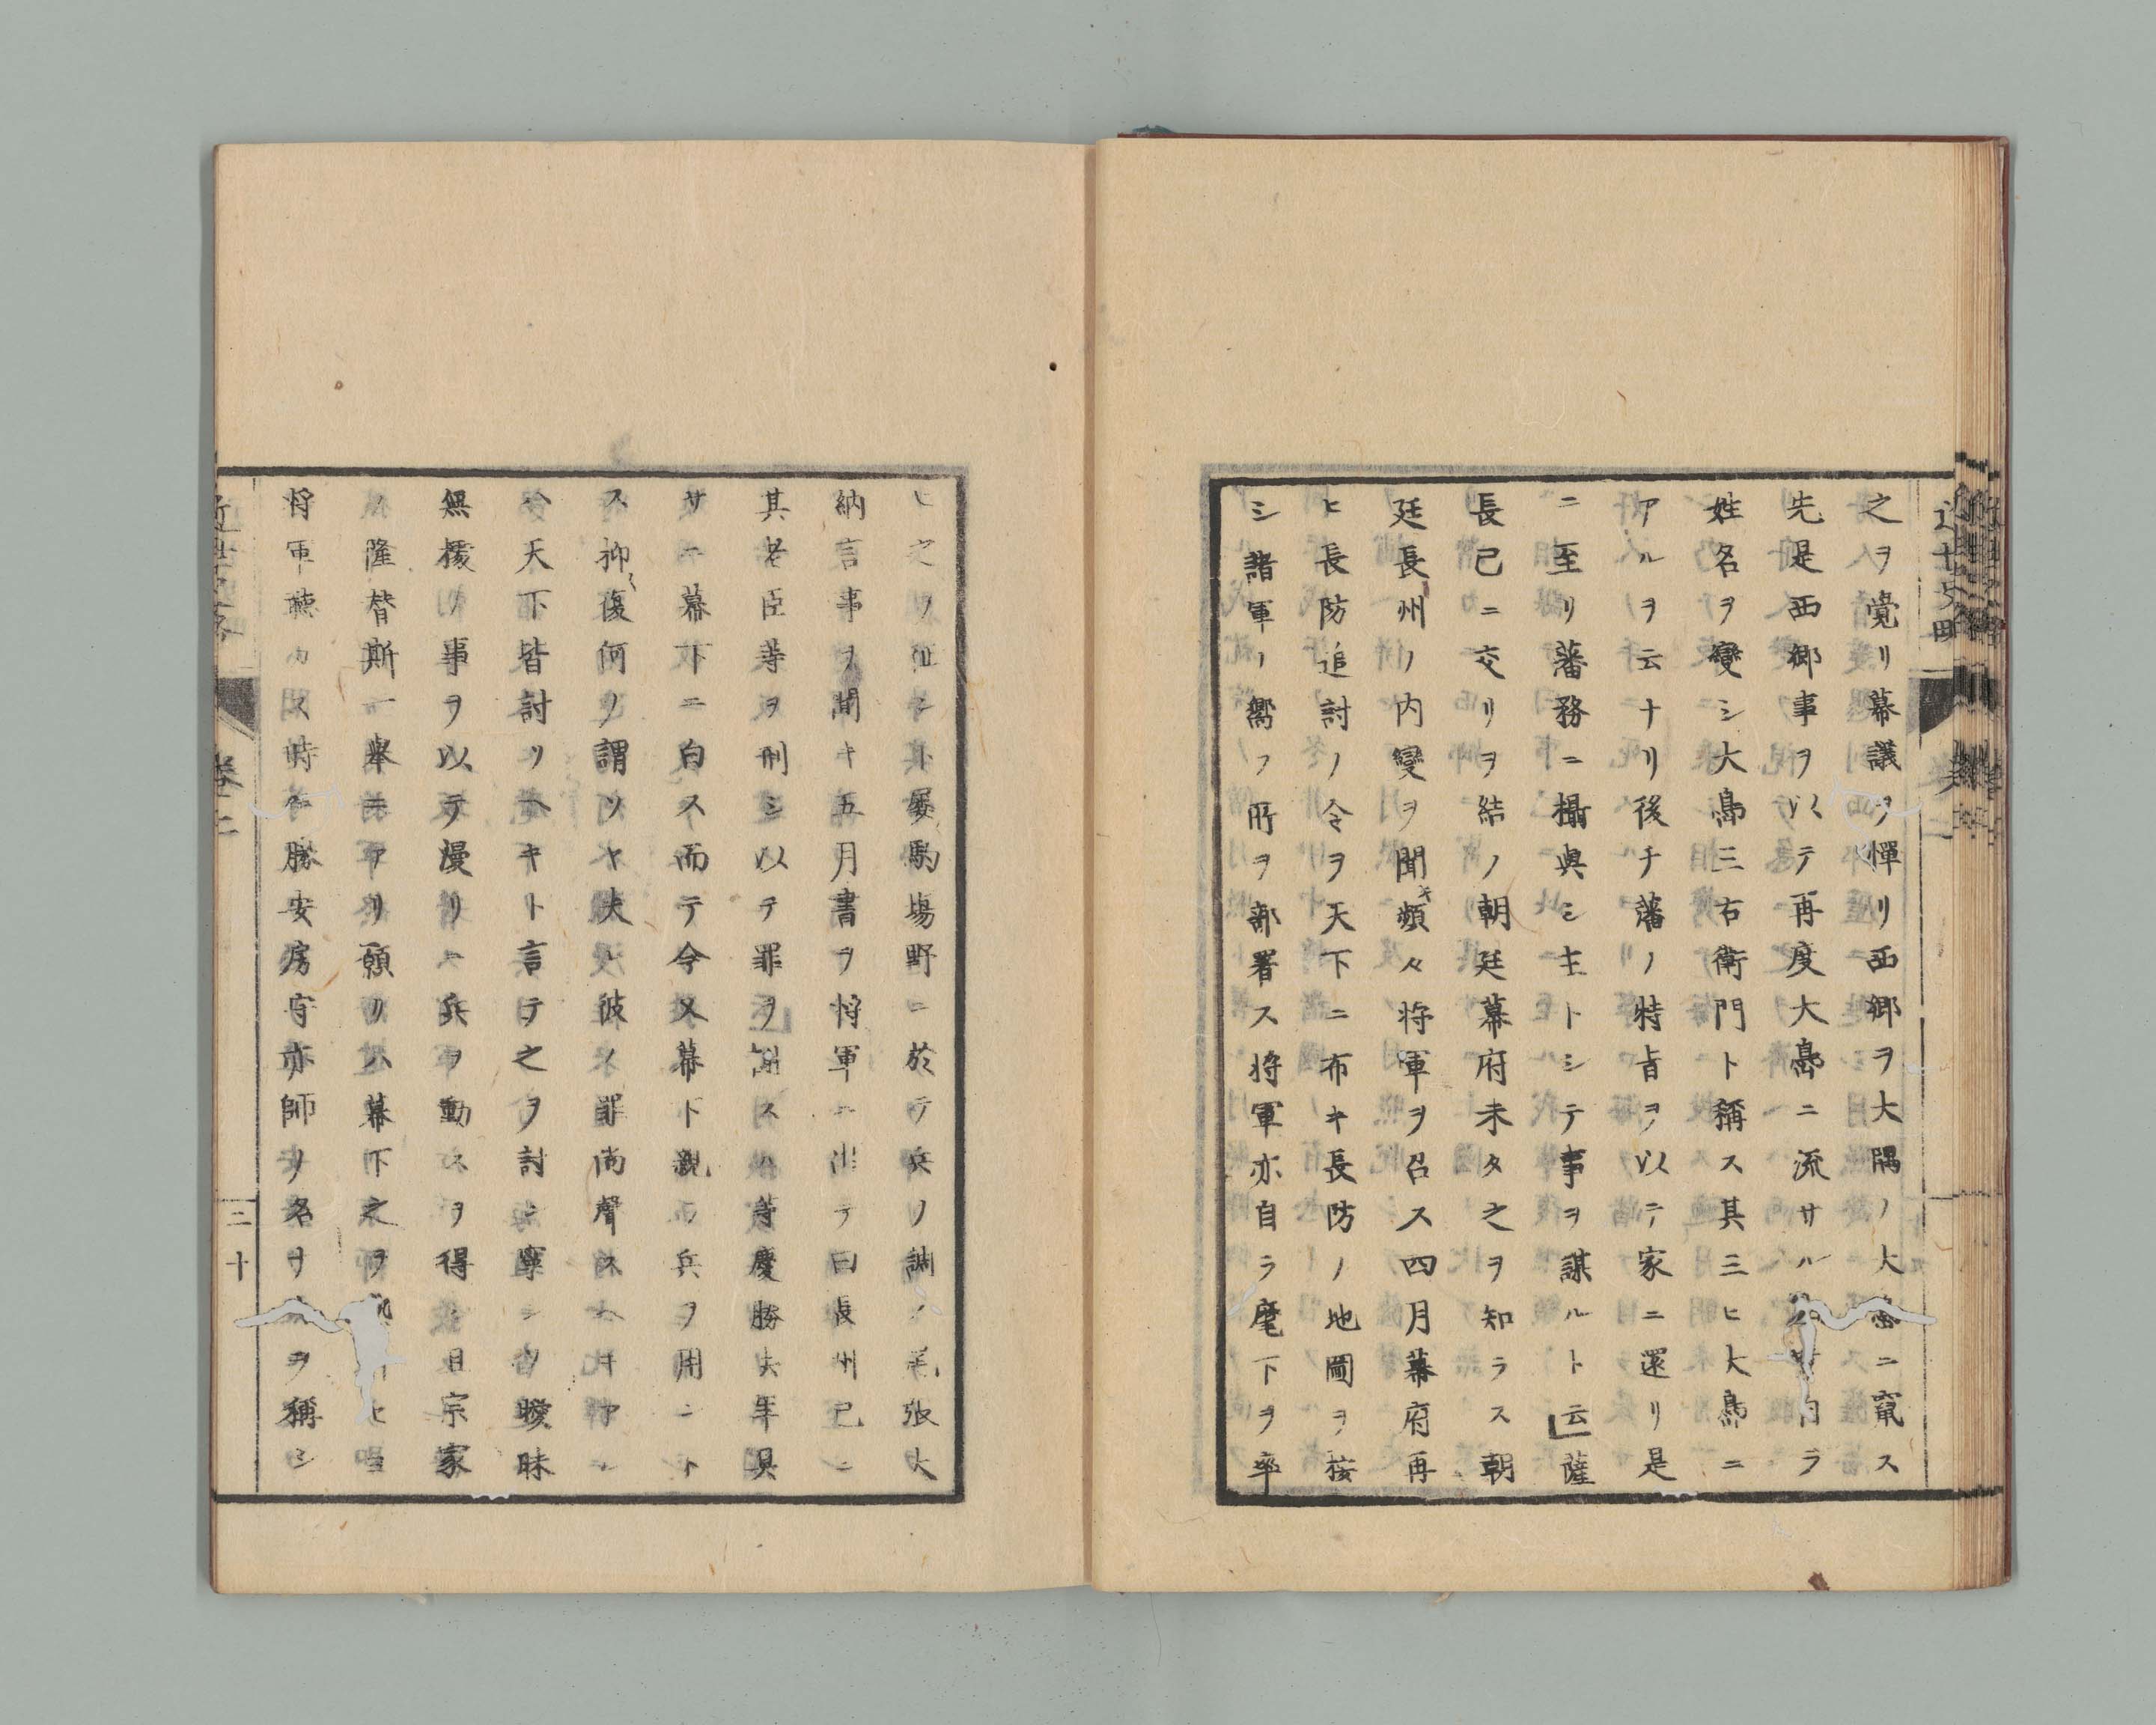 之ヲ覺リ幕議ヲ憚リ西郷ヲ大隅ノ大島ニ竄ス
先是西郷事ヲ以テ再度大島ニ流サル 自ラ
姓名ヲ變シ大島三右衛門ト稱ス其三ヒ大島ニ
アルヲ云ナリ後チ藩ノ特旨ヲ以テ家ニ還リ是
ニ至リ藩務ニ攝與シ主トシテ事ヲ謀ルト云薩
長已ニ交リヲ結ノ朝廷幕府未タ之ヲ知ラス朝
廷長州ノ内變ヲ聞キ頻々将軍ヲ召ス四月幕府再
ヒ長防追討ノ令ヲ天下ニ布キ長防ノ地圖ヲ按
シ諸軍ノ嚮フ所ヲ部署ス将軍亦自ラ麾下ヲ率
ヒ之ヲ征シト屡駒塲野ニ於テ兵ノ調 尾張大
納言事ヲ聞キ五月書ヲ将軍ニ出テ曰長州已ニ
其老臣等ヲ刑シ以テ罪ヲ謝ス 等慶勝去年具
サニ幕下ニ白ス而テ今又幕下親ラ兵ヲ用ニト
ス抑復何ノ謂ソヤ夫レ彼ノ罪尚聲スヘキアレ
ハ天下皆討リヘキト言テ之ヲ討シ寧シソ曖昧
無授ノ事ヲ以テ漫リニ兵ヲ動スヲ得シ且宗家
ノ隆替斯一擧ニアリ願リハ幕下之ヲ
将軍聴カス時ニ勝安房守亦師ノ名ナキヲ稱シ
卷二
三十